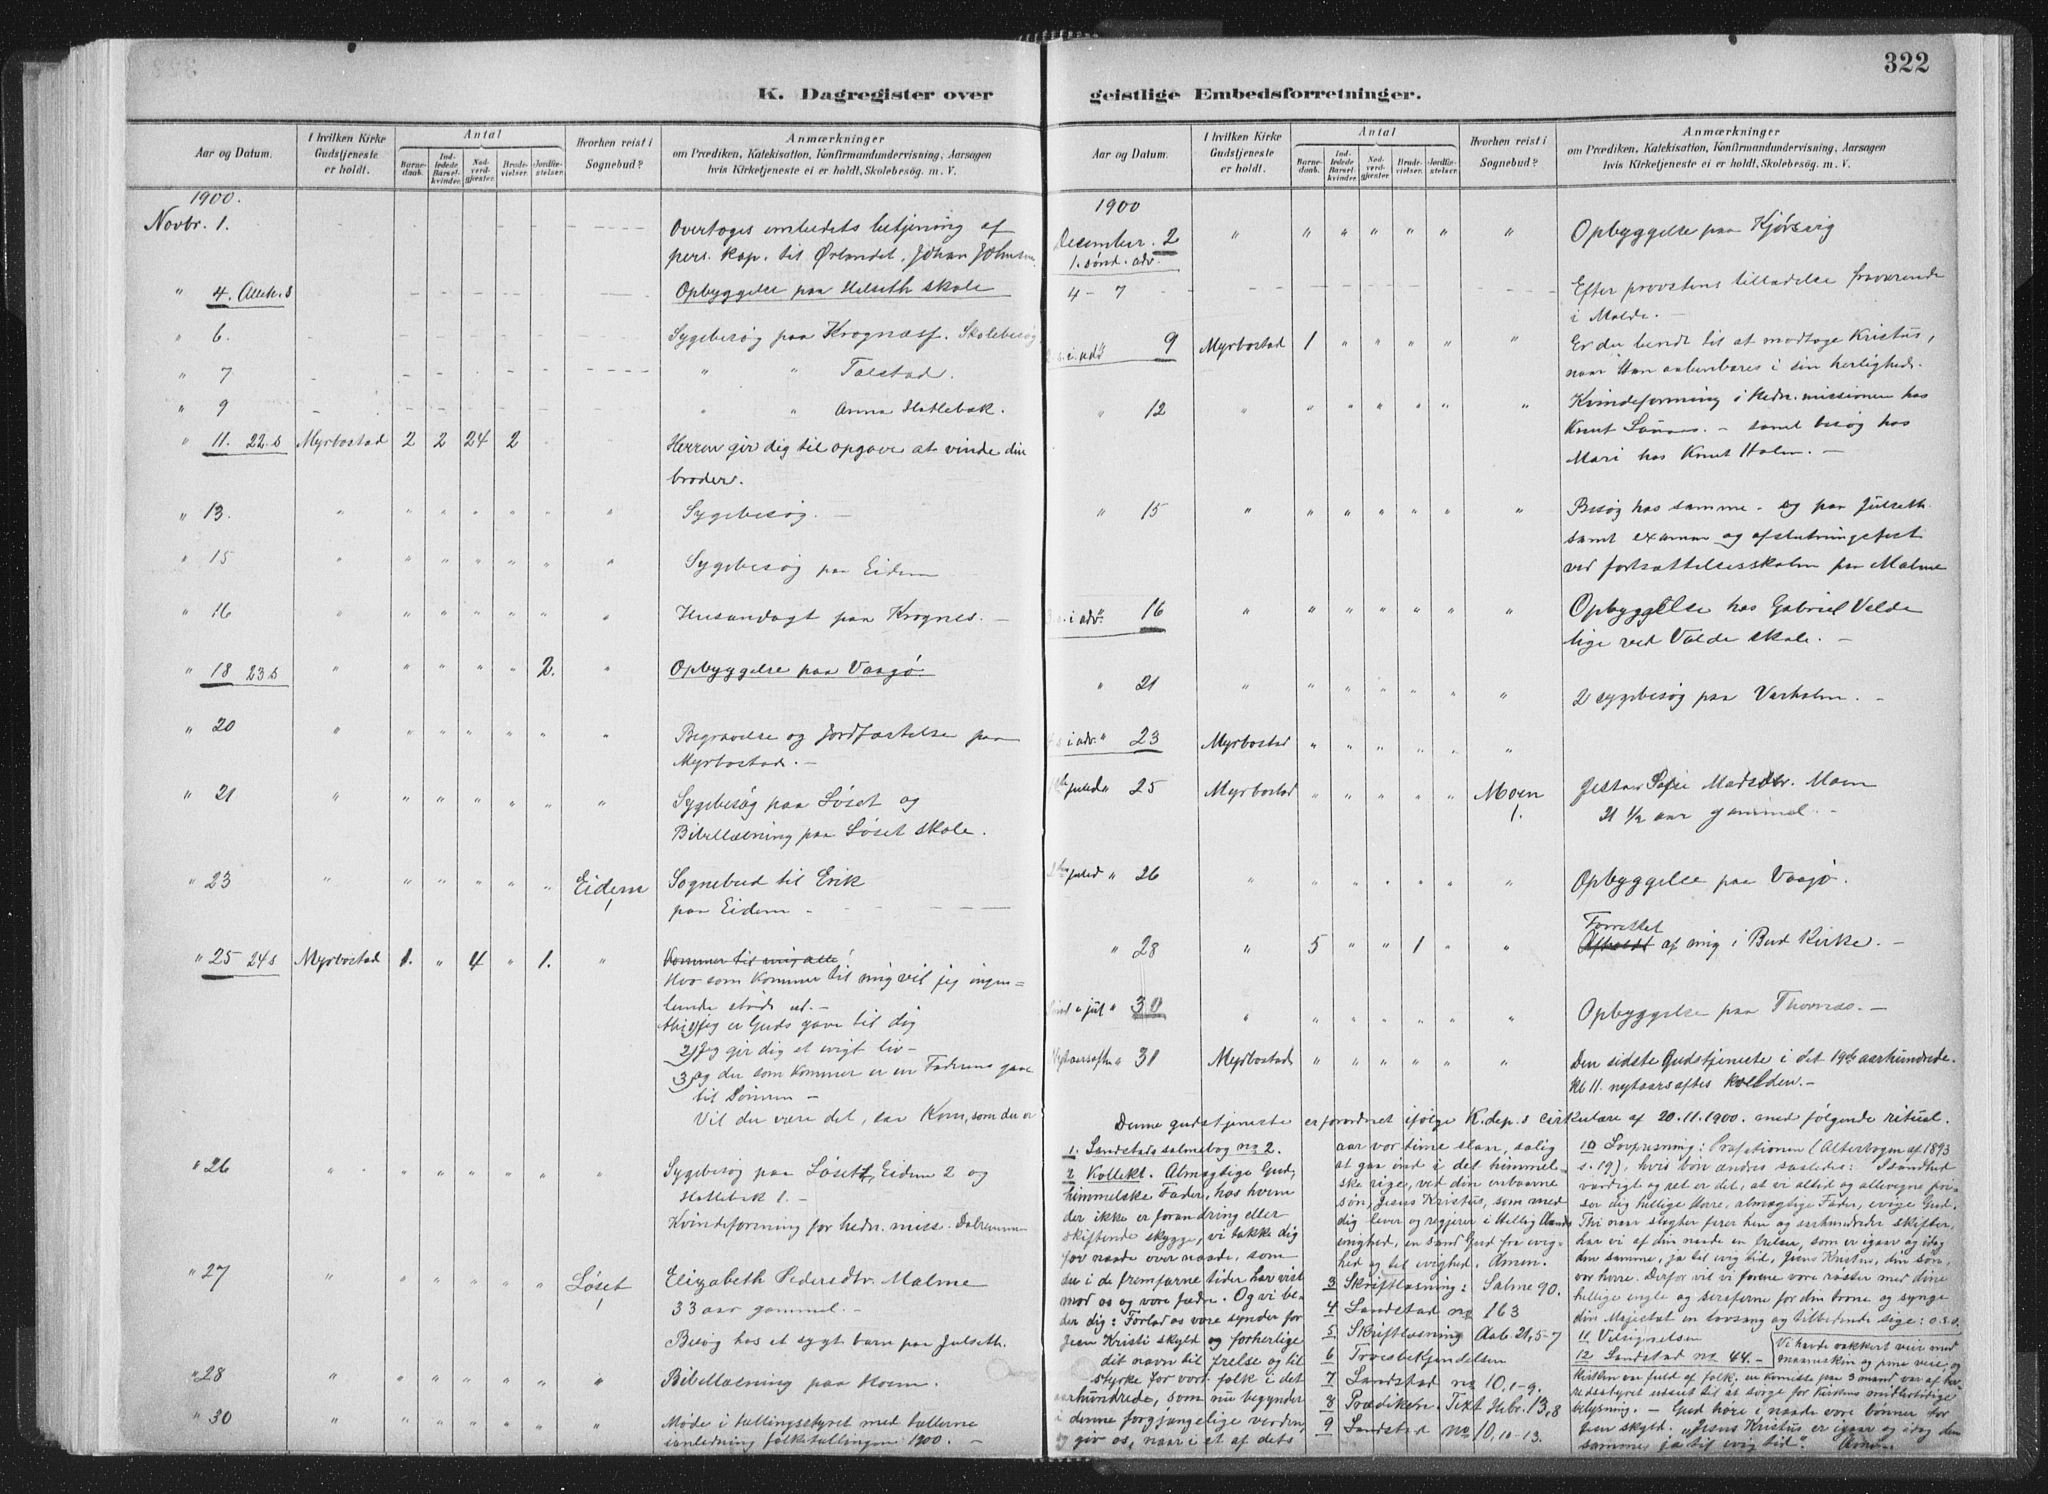 322
K. Dagregister over
geistlige Embedsforretninger.
Aar og Datum.
I hvilken Kirke Gudstjeneste er holdt.
Antal
Barnedaab.
Indledede Barselkvinder.
Nadverdgjester.
Brudevielser.
Jordfæstelser.
Hvorhen reist i Sognebud?
Anmærkninger
om Prædiken, Katekisation, Konfirmandundervisning, Aarsagen
hvis Kirketjeneste ei er holdt, Skolebesøg. m. V.
1900.
Novbr. 1. Overtoges embedets betjening af
pers. kap. til Ørlandet, Johan Johnsen.
" 4. Alleh.s Opbyggelse paa Helseth skole
" 6. Sygebesøg paa Krognæsf. Skolebesøg
" 7 " " Talstad.
" 9 " " Anna Hatlebak.
" 11. 22.s Myrbostad 2 2 24 2 " Herren gir dig til opgave at vinde din
broder.
" 13. " " " " " " " Sygebesøg. –
" 15 " " " " " " " Sygebesøg paa Eidem
" 16 " " " " " " " Husandagt paa Krognes. –
" 18 23 s " " " " " 2. " Opbyggelse paa Vaagø.
" 20 " " " " " " " Begravelse og Jordfæstelse paa
Myrbostad. –
" 21 " " " " " " " Sygebesøg paa Løset og
Bibellæsning paa Løset skole.
" 23 " " " " " " Eidem Sognebud til Erik
1 paa Eidem –
" 25 24 s Myrbostad 1. " 4 " 1. " Kommer til mig alle!
Hvo som kommer til mig vil jeg ingen-
lunde støde ud. –
Thi 1) jeg er Guds gave til dig
2) Jeg gir dig et evigt liv –
3) og du som kommer er en Faderens gave
til Sønnen –
Vil du være det, saa Kom, som du er
" 26 " " " " " " " Sygebesøg paa Løset 1, Eidem 2 og
Hatlebak 1. –
Kvindeforening for hedn. miss.
" 27 " " " " " " Løset Elizabeth Pedersdtr. Malme
1 33 aar gammel. –
Besøg hos et sygt barn paa Julseth.
" 28 " " " " " " " Bibellæsning paa Hoem.
" 30 " " " " " " " Møde i tællingsstyret med tællerne
i anledning folketællingen 1900. –
Aar og Datum.
I hvilken Kirke Gudstjeneste er holdt.
Antal
Barnedaab.
Indledede Barselkvinder.
Nadverdgjester.
Brudevielser.
Jordfæstelser.
Hvorhen reist i Sognebud?
Anmærkninger
om Prædiken, Katekisation, Konfirmandundervisning, Aarsagen
hvis Kirketjeneste ei er holdt, Skolebesøg. m. V.
1900
December. 2 " " " " " " " Opbyggelse paa Kjørsvig
1. sønd. adv.
4 – 7 Efter provstens tilladelse fraværende
i Molde. –
s. i. adv 9 Myrbostad 1 " " " " " Er du beredt til at modtage Kristus,
naar Han aabenbares i sin herlighed.
" 12 " " " " " " " Kvindeforening i hedn. missionen hos
Knut – samt besøg hos
Mari hos Knut Holm. –
" 15 " " " " " " " Besøg hos samme – og paa Julseth
samt examen og afslutningsfest
ved fortsættelsesskolen paa Malme
s. i adv. " 16 " " " " " " " Opbyggelse hos Gabriel Valde
lige ved Valde skole. –
" 21 " " " " " " " 2 sygebesøg paa Varholm. –
s i adv. " 23 Myrbostad " " " " " "
juled " 25 Myrbostad " " " " " Moen Sofie Madsdtr. Moen
1. 21 1/2 aar gammel. –
juled " 26 " " " " " " " Opbyggelse paa Vaagø.
Forrettet
" 28 " 5 " " 1 " " Afholdt af mig i Bud Kirke. –
jul " 30 " " " " " " " Opbyggelse paa Thornæs. –
Nytaarsaften " 31 Myrbostad " " " " " " Den sidste Gudstjeneste i det 19de aarhundrede.
Kl 11. nytaarsaftes kvelden. –
Denne gudstjeneste er forordnet ifølge K. dep.s cirkulære af 20.11.1900. med følgende ritual.
1. Landstads salmebog no 2.
2 Kollekt. Almægtige Gud,
himmelske Fader, hos hvem
der ikke er forandring eller
skiftende skygge, vi takke dig
for naade over naade, som
du i de fremfarne tider har vist
mod os og vore fædre. Og vi be-
der dig: Forlad os vore synder for
Jesu Kristi skyld og forherlige
dit navn til frelse og til
styrke for vort folk i det
aarhundrede, som nu begynder
i denne forgjængelige verden,
og giv os, naar i et af dets
aar vor time slaar, salig
at gaa ind i det himmel-
ske rige, ved din enbaarne
søn, Jesus Kristus, som med
dig lever og regjerer i Hellig Aands
enighed, en sand Gud fra evig-
hed og til evighed. Amen.
3 Skriftlæsning: Salme 90.
4 Landstad no 163
5 Skriftlæsning Aab 21, 5-7
6 Troesbekjendelsen
7 Landstad no 10, 1-9.
8 Prædiken. Text Hebr. 13, 8
9 Landstad no 10, 10-13.
10 Lovprisning: Præfationen (Alterbogen af 1893
s. 19), hvis bøn ændres saaledes: I sandhed
værdigt og ret er det, at vi altid og allevegne pri-
ser dig hellige Herre, almægtige Fader, evige Gud.
Thi naar slegter farer hen og aarhundreder skifter,
har vi af din naade en frelser, som er igaar og idag
den samme, ja til evig tid, Jesus Kristus, din søn,
vor herre. Derfor vil vi forene vore røster med dine
hellige engle og seraferne for din trone og synge
din Majestæt en lovsang og tilbedende sige: o.s.v.
11 Velsignelsen
12 Landstad no 44. –
Vi havde vakkert veir med
maaneskin og pene veie, og
Kirken var fuld af folk, en komite paa 3 mand var af he-
redsstyret udseet til at sørge for Kirkens midlertidige
belysning. – Gud høre i naade vore bønner for
Jesu skyld. "Jesus Kristus er igaar og idag den
samme ja til evig tid". Amen.